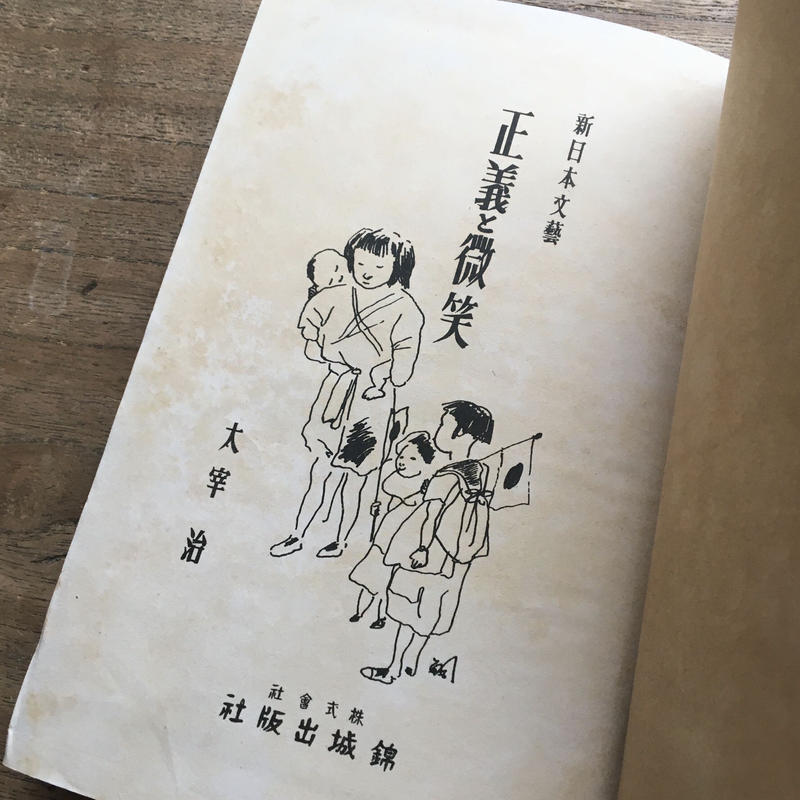 新日本文藝
正義と微笑
太宰治
株式會社
錦城出版社